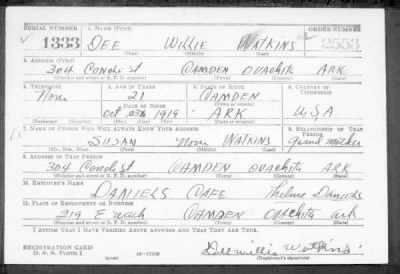 SERIAL NUMBER 1. NAME (Print) ORDER NUMBER
1333 DEE WILLIE WATKINS 2553
(First) (Middle) (Last)
2. ADDRESS (Print)
304 Conch st CAMDEN OUACHITA ARK
(Number and street or R. F. D. number) (Town) (County) (State)
3. TELEPHONE 4. AGE IN YEARS 5. PLACE OF BIRTH 6. COUNTRY OF CITIZENSHIP
None 21 CAMDEN
DATE OF BIRTH (Town or county)
Oct 1919 ARK U.S.A.
(Mo.) (Day) (Yr.) (State or country)
7. NAME OF PERSON WHO WILL ALWAYS KNOW YOUR ADDRESS 8. RELATIONSHIP OF THAT PERSON
SUSAN None WATKINS grand mother
(Mr., Mrs., Miss) (First) (Middle) (Last)
9. ADDRESS OF THAT PERSON
304 Conch st CAMDEN OUACHITA ARK
(Number and street or R. F. D. number) (Town) (County) (State)
10. EMPLOYER'S NAME
DANIELS CAFE Thelma Daniels
11. PLACE OF EMPLOYMENT OR BUSINESS
219 E CAMDEN OUACHITA ark
(Number and street or R. F. D. number) (Town) (County) (State)
I AFFIRM THAT I HAVE VERIFIED ABOVE ANSWERS AND THAT THEY ARE TRUE.
REGISTRATION CARD
D. S. S. Form 1 (over) 16-17105 Dee willie Watkins
(Registrant's signature)